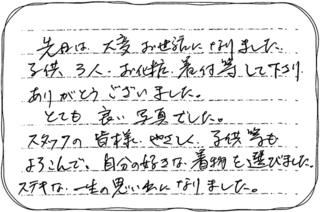 先日は、大変お世話になりました。
子供3人、お化粧、着付等して下さり
ありがとうございました。
とても良い写真でした。
スタッフの皆様、やさしく、子供等も
よろこんで、自分の好きな着物を選びました。
ステキな一生の思い出になりました。